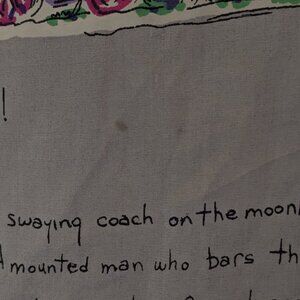 !
swaying coach on the moon
mounted man who bars th